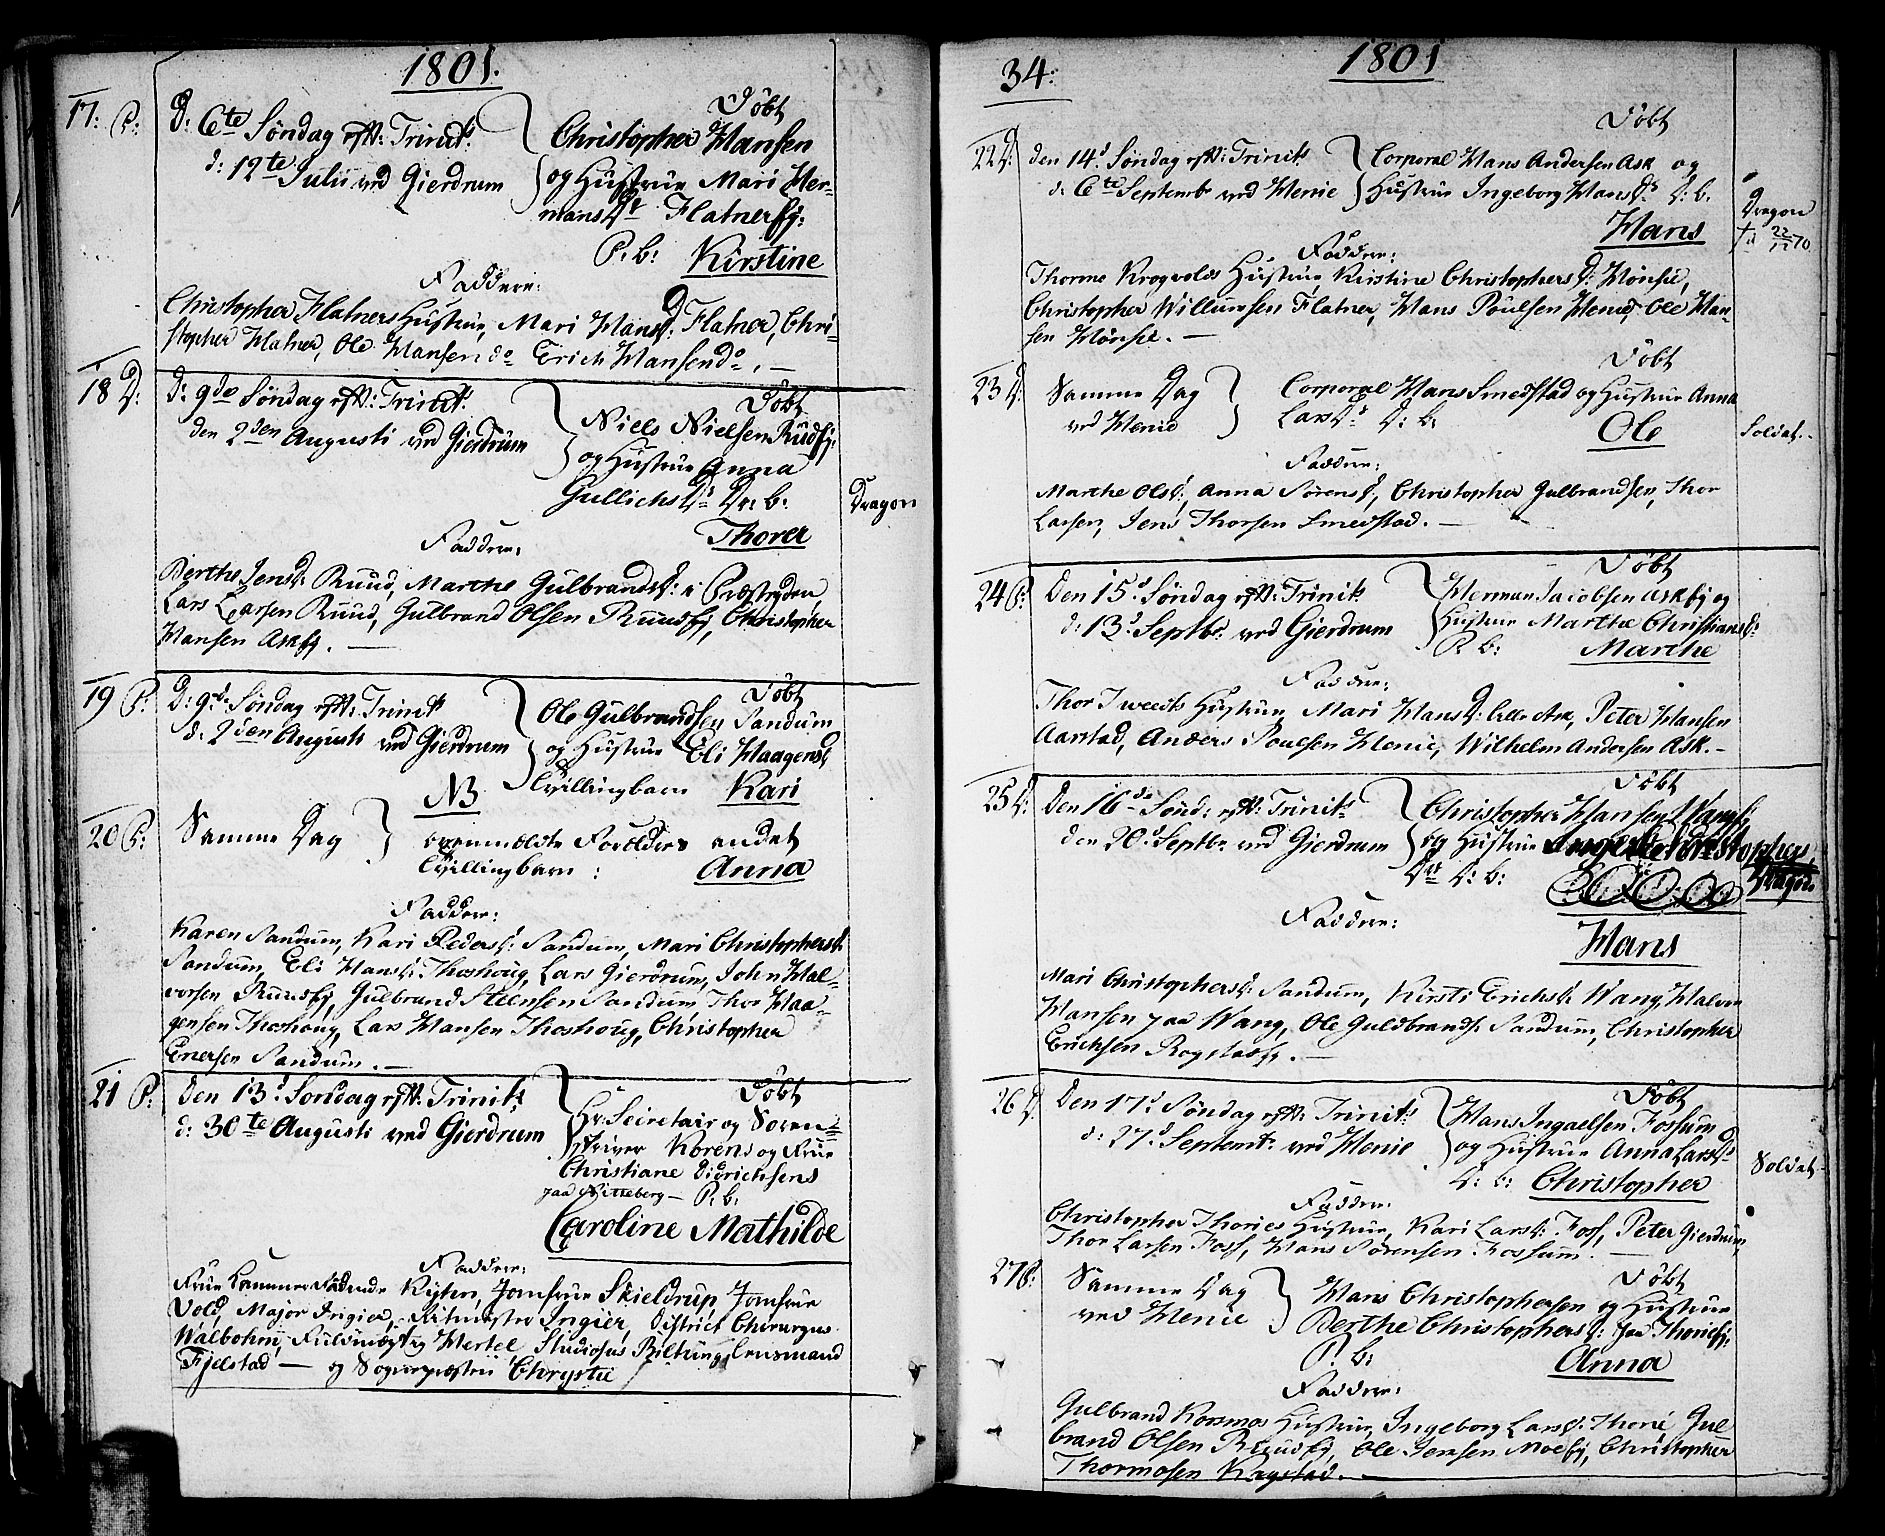 1801.
17: P:
D: 6te Søndag eft: Trinit:
d: 12te Julii ved Gierdrum
Døbt
Christopher Hansen
og Hustrue Mari Her-
mansDr Flatnerej:
P: b: Kirstine
Faddere:
Christopher Flatners Hustrue, Mari HansD: Flatner, Chri-
stopher Flatner, Ole Hansen do Erich Hansen do. —
18 D:
D: 9de Søndag eft: Trinit:
den 2den Augusti ved Gierdrum
Døbt
Niels Nielsen Rudej:
og Hustrue Anna
GullichsDr Dr: b:
Thorer
Dragon
Faddere:
Berthe JensD: Ruud, Marthe GulbrandsD: i
Lars Larsen Ruud, Gulbrand Olsen Ruudej, Christopher
Hansen Askej. —
19 P:
D: 9de Søndag eft: Trinits
d. 2den Augusti ved Gierdrum
Døbt
Ole Gulbrandsen Sandum
og Hustrue Eli HaagensD
Tvillingbarn Kari
NB
20 P:
Samme Dag
ovenmeldte Forældres andet
Tvillingbarn: Anna
Faddere:
Karen Sandum, Kari PedersD: Sandum, Mari ChristophersD:
Sandum, Eli HansD: Thoshoug, Lars Gierdrum, John Hal-
vorsen Ruudej, Gulbrand Steensen Sandum, Thor Haa-
gensen Thoshoug, Lars Hansen Thoshoug, Christopher
Enersen Sandum. —
21 P:
Den 13d Søndag eft: Trinits
d: 30te Augusti ved Gierdrum
Døbt
Hr: Secretair og Soren-
skriver Koren og Frue
Christiane Didrichsens
paa Nitteberg — P: b:
Caroline Mathilde
Faddere:
Frue Cammerraadinde Jomfrue Skieldrup, Jomfrue
Vold, Major Ingier, Ritmester Ingier, District Chirurgus
Walbohm, Fuldmægtig Hertel, Studiosus Biltung, Lensmand
Fjelstad — og Sognepræsten Chrystie
34:
1801
22 D:
den 14d Søndag eft: Trinits
d: 6te Septembr ved Henie
Døbt
Corporal Hans Andersen Ask og
Hustrue Ingeborg HansD: D: b:
Hans
Dragon
† d 22/12 70
Faddere:
Thorme Krogvolds Hustrue, Kirstine ChristophersD: Hønsie,
Christopher Willumsen Flatner, Hans Poulsen Henie, Ole Han-
sen Hønsie. —
23 D:
Samme Dag
ved Henie
Døbt
Corporal Hans Smedstad og Hustrue Anna
LarsDr D: b:
Ole
Soldat.
Faddere:
Marthe OlsD:, Anna SørensD:, Christopher Gulbrandsen, Thor
Larsen, Jens Thorsen Smedstad. —
24 P:
Den 15d Søndag eft: Trinits
d: 13d Septbr. ved Gierdrum
Døbt
Herman Jacobsen Askej og
Hustrue Marthe ChristiansD:
P: b: Marthe
Faddere:
Thor Tweets Hustrue, Mari HansD: Lille Ask, Peter Hansen
Aarstad, Anders Poulsen Henie, Wilhelm Andersen Ask. —
25 D:
Den 16de Sønd: eft: Trinits
den 20d Septbr. ved Gierdrum
Døbt
Christopher Hansen Wangej
og Hustrue Christophers
Dr D: b:
Dragon
Hans
Faddere:
Mari ChristophersD: Sandum, Kirsti ErichsD: Wang, Halvor
Hansen paa Wang, Ole Guldbrands: Sandum, Christopher
Erichsen Rogstadej. —
26 D:
Den 17d Søndag eft: Trinits
d: 27d Septemb: ved Henie
Døbt
Hans Ingaelsen Fossum
og Hustrue Anna LarsDr
D: b: Christopher
Soldat
Faddere:
Christopher Thories Hustrue, Kari LarsD: Foss, Peter Gierdrum
Thor Larsen Foss, Hans Sørensen Fossum. —
27 P:
Samme Dag
ved Henie
Døbt
Hans Christophersen og Hustrue
Berthe ChristophersD: paa Thorieej:
P: b: Anna
Faddere:
Gulbrand Kormos Hustrue, Ingeborg LarsD: Thorie, Gul-
brand Olsen Ruudej, Ole Jensen Moeej, Christopher
Thormosen Kagstad. —